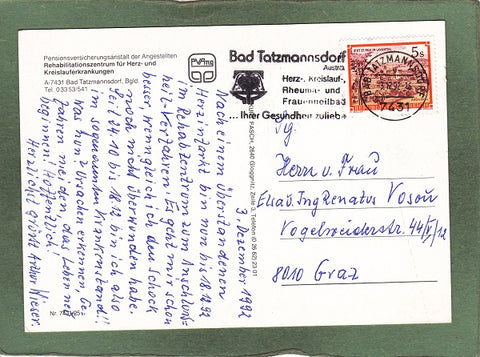 Pensionsversicherungsanstalt der Angestellten
Rehabilitationszentrum für Herz- und
Kreislauferkrankungen
A-7431 Bad Tatzmannsdorf, Bgld.
Tel. 03353/541
Bad Tatzmannsdorf
Austria
Herz-, Kreislauf-,
Rheuma- und
Frauenheilbad
... Ihrer Gesundheit zuliebe
5s
BAD TATZMANNSDORF
7431
3. Dezember 1992
Nach einem überstandenen
Herzinfarkt bin nun bis 18.12.92
im Rehabzentrum zum Anschluss-
heil-Verfahren. Es geht mir schon
besser wenngleich ich den Schock
noch nicht überwunden habe.
Seit 24.10 bis 18.12 bin ich also
im Krankenstand!!
was kein Ursachen erkennen.
dem das Leben neu
beginnen! Hoffentlich!
Herzlichst grüßt Artur Wieser.
PASCH, 2640 Gloggnitz, Zeile 3, Telefon (0 26 62) 23 01
Herrn u. Frau
Ing Renatus Vosou
Vogelweiderstr. 44/V/12
8010 Graz